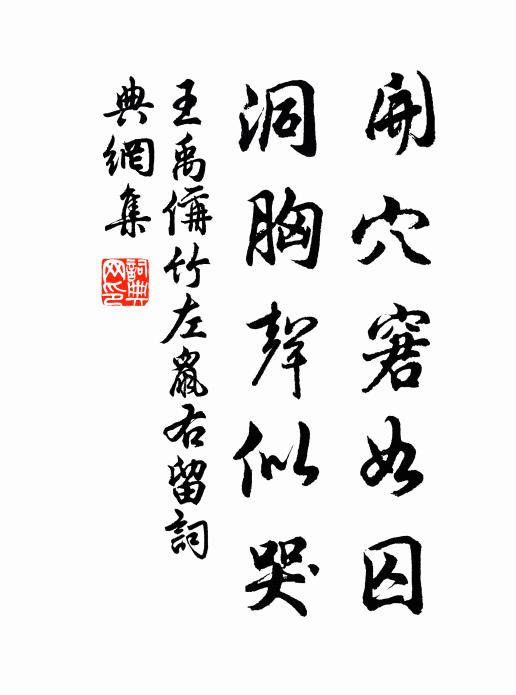 開穴窘如囚
洞胸聲似哭
王禹偁竹左鼠右留詞
典網集
詞典网印